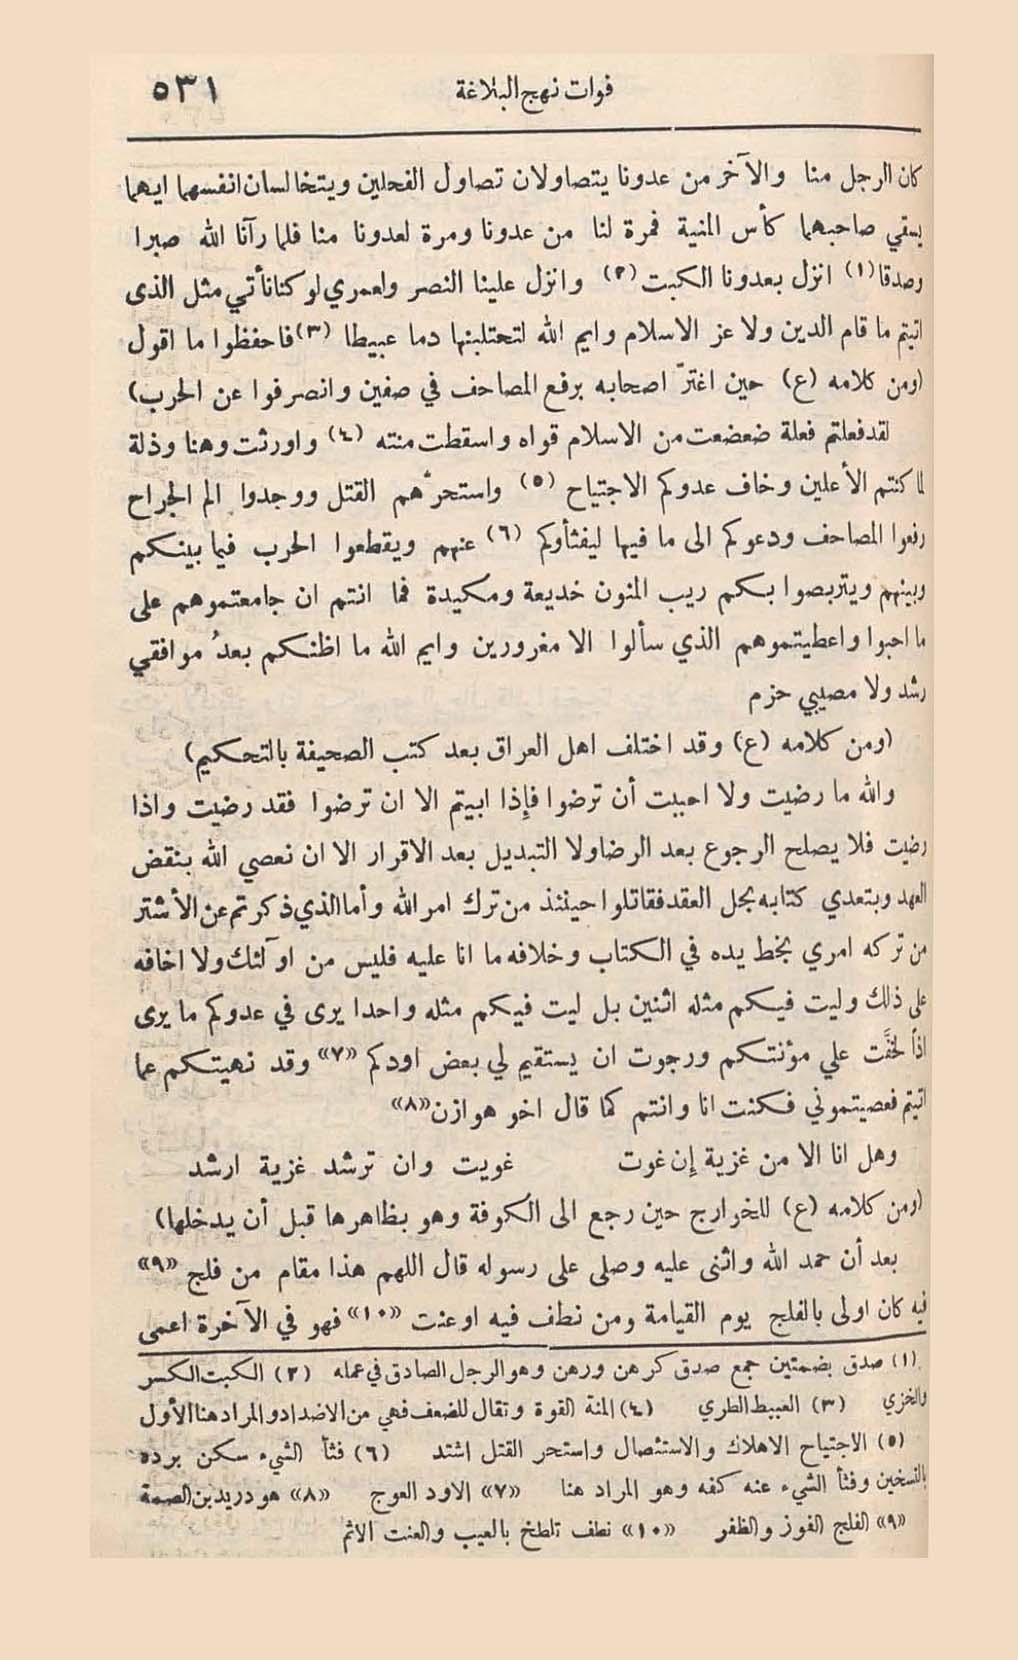 فوات نهج البلاغة
٥٣١
كان الرجل منا والآخر من عدونا يتصاولان تصاول الفحلين ويتخالسان انفسهما ايهما
يسقي صاحبهما كأس المنية فمرة لنا من عدونا ومرة لعدونا منا فلما رآنا الله صبرا
وصدقا (١) انزل بعدونا الكبت (٢) وانزل علينا النصر ولعمري لو كنا نأتي مثل الذى
اتيتم ما قام الدين ولا عز الاسلام وايم الله لتحتلبنها دما عبيطا (٣) فاحفظوا ما اقول
(ومن كلامه (ع) حين اغترّ اصحابه برفع المصاحف في صفين وانصرفوا عن الحرب)
لقد فعلتم فعلة ضعضعت من الاسلام قواه واسقطت منته (٤) واورثت وهنا وذلة
لما كنتم الأعلين وخاف عدوكم الاجتياح (٥) واستحرّ هم القتل ووجدوا الم الجراح
رفعوا المصاحف ودعوكم الى ما فيها ليفثأوكم (٦) عنهم ويقطعوا الحرب فيما بينكم
وبينهم ويتربصوا بكم ريب المنون خديعة ومكيدة فما انتم ان جامعتموهم على
ما احبوا واعطيتموهم الذي سألوا الا مغرورين وايم الله ما اظنكم بعدُ موافقي
رشد ولا مصيبي حزم
(ومن كلامه (ع) وقد اختلف اهل العراق بعد كتب الصحيفة بالتحكيم)
والله ما رضيت ولا احببت أن ترضوا فإذا ابيتم الا ان ترضوا فقد رضيت واذا
رضيت فلا يصلح الرجوع بعد الرضا ولا التبديل بعد الاقرار الا ان نعصي الله بنقض
العهد وبتعدي كتابه بحل العقد فقاتلوا حينئذ من ترك امر الله وأما الذي ذكرتم عن الأشتر
من تركه امري بخط يده في الكتاب وخلافه ما انا عليه فليس من اولئك ولا اخافه
على ذلك وليت فيكم مثله اثنين بل ليت فيكم مثله واحدا يرى في عدوكم ما يرى
اذاً لخفَّت علي مؤنتكم ورجوت ان يستقيم لي بعض اودكم «٧» وقد نهيتكم عما
اتيتم فعصيتموني فكنت انا وانتم كما قال اخو هوازن «٨»
وهل انا الا من غزية إن غوت غويت وان ترشد غزية ارشد
(ومن كلامه (ع) للخوارج حين رجع الى الكوفة وهو بظاهرها قبل أن يدخلها)
بعد أن حمد الله واثنى عليه وصلى على رسوله قال اللهم هذا مقام من فلج «٩»
فيه كان اولى بالفلج يوم القيامة ومن نطف فيه او عنت «١٠» فهو في الآخرة اعمى
(١) صدق بضمتين جمع صدق كرهن ورهن وهو الرجل الصادق في عمله (٢) الكبت الكسر
والخزي (٣) العبيط الطري (٤) المنة القوة وتقال للضعف فهي من الاضداد والمراد هنا الأول
(٥) الاجتياح الاهلاك والاستئصال واستحر القتل اشتد (٦) فثأ الشيء سكن برده
بالتسخين وفثأ الشيء عنه كفه وهو المراد هنا «٧» الاود العوج «٨» هو دريد بن الصمة
«٩» الفلج الفوز والظفر «١٠» نطف تلطخ بالعيب والعنت الاثم